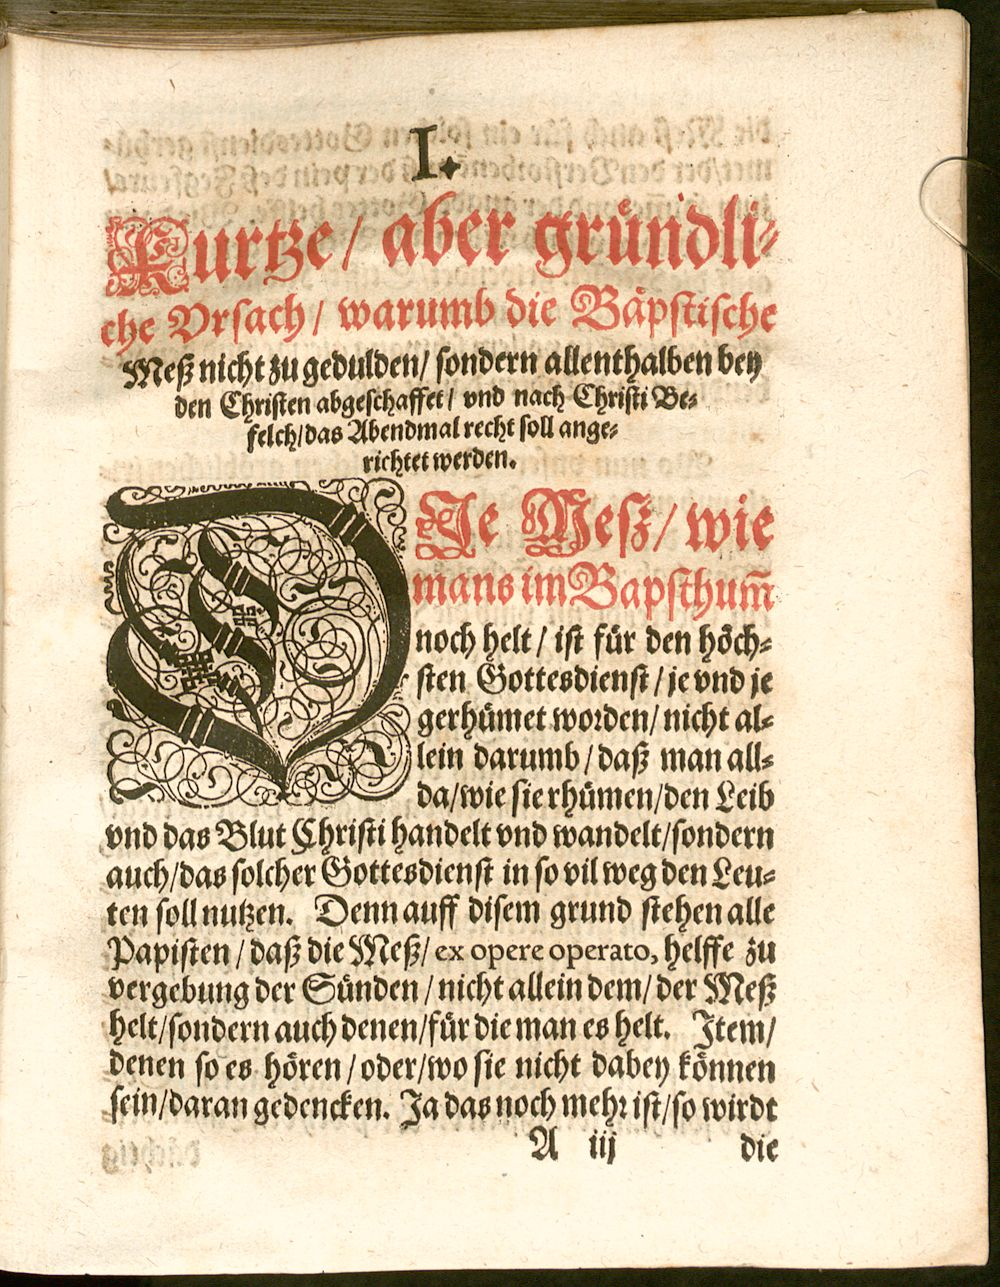 I.
Kurtze / aber gründli-
che Vrsach / warumb die Bäpstische
Meß nicht zu gedulden / sondern allenthalben bey
den Christen abgeschaffet / vnd nach Christi Be-
felch / das Abendmal recht soll ange-
richtet werden.
DIe Mesz / wie
mans im Bapsthum̃
noch helt / ist für den höch-
sten Gottesdienst / je vnd je
gerhümet worden / nicht al-
lein darumb / daß man all-
da / wie sie rhümen / den Leib
vnd das Blut Christi handelt vnd wandelt / sondern
auch / das solcher Gottesdienst in so vil weg den Leu-
ten soll nutzen. Denn auff disem grund stehen alle
Papisten / daß die Meß / ex opere operato, helffe zu
vergebung der Sünden / nicht allein dem / der Meß
helt / sondern auch denen / für die man es helt. Item /
denen so es hören / oder / wo sie nicht dabey können
sein / daran gedencken. Ja das noch mehr ist / so wirdt
A iij die